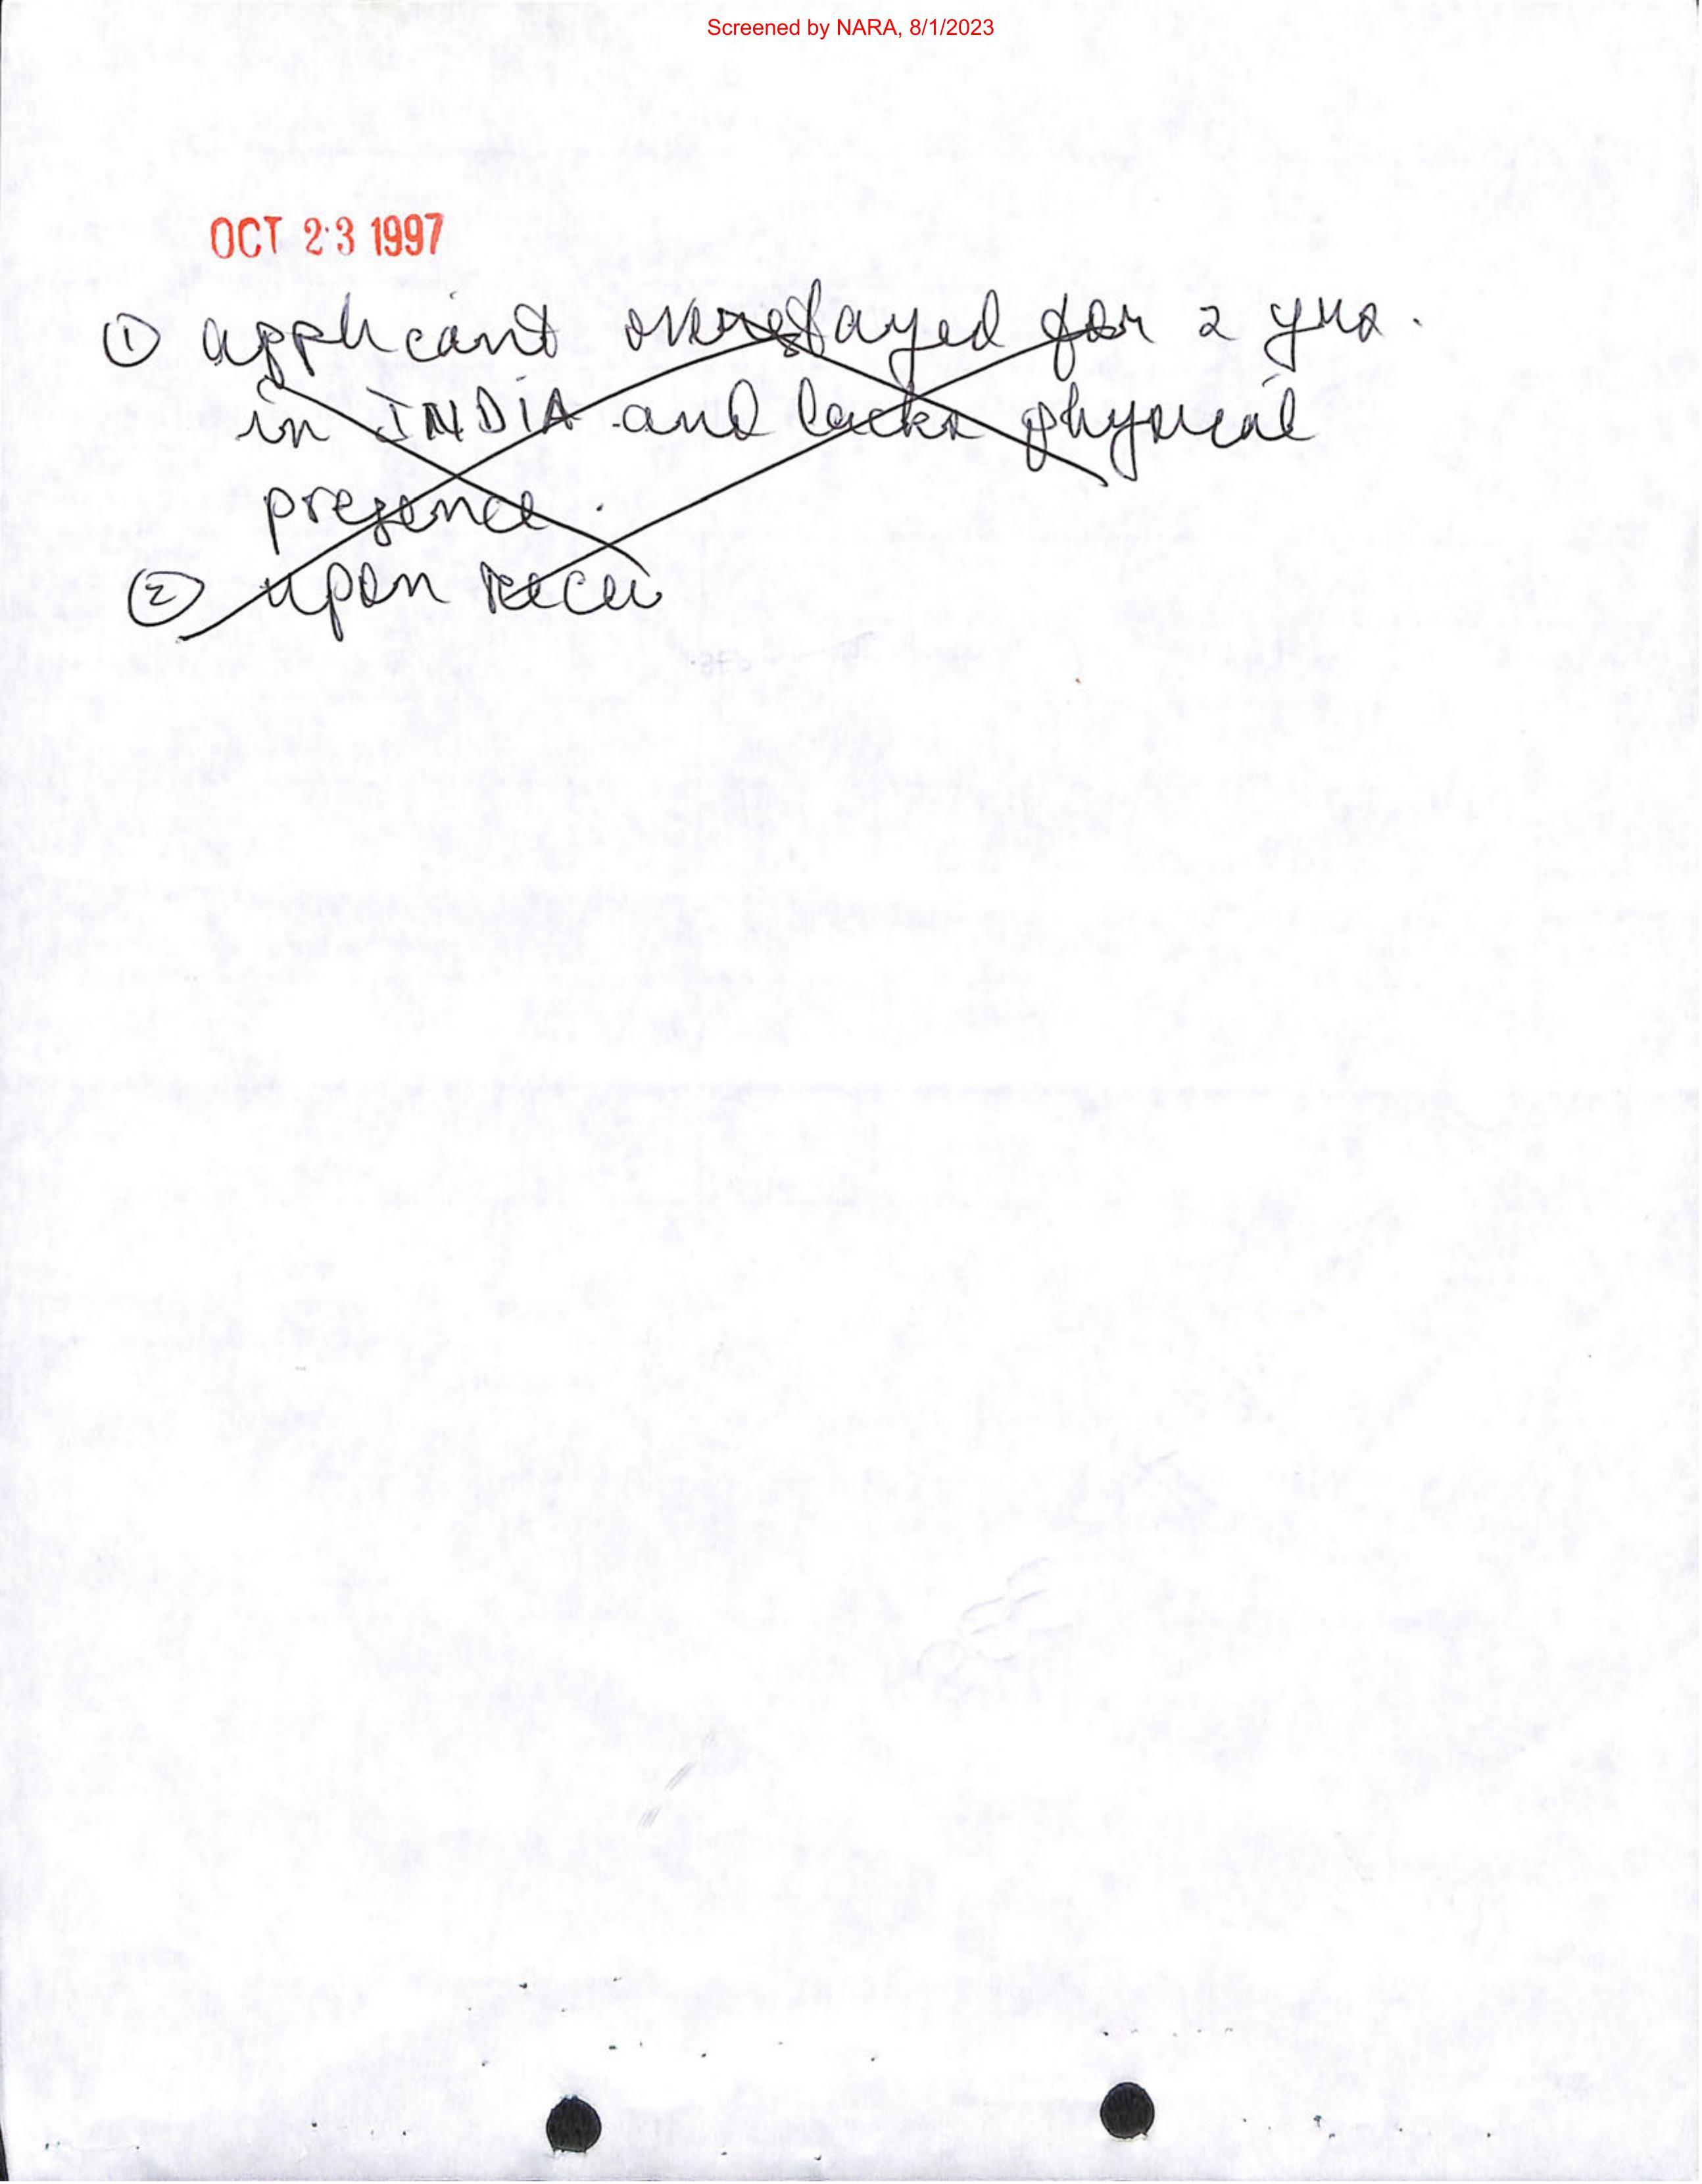 Screened by NARA, 8/1/2023
OCT 23 1997
① applicant overstayed for 2 yrs.
in INDIA and lacks physical
presence.
② upon recei